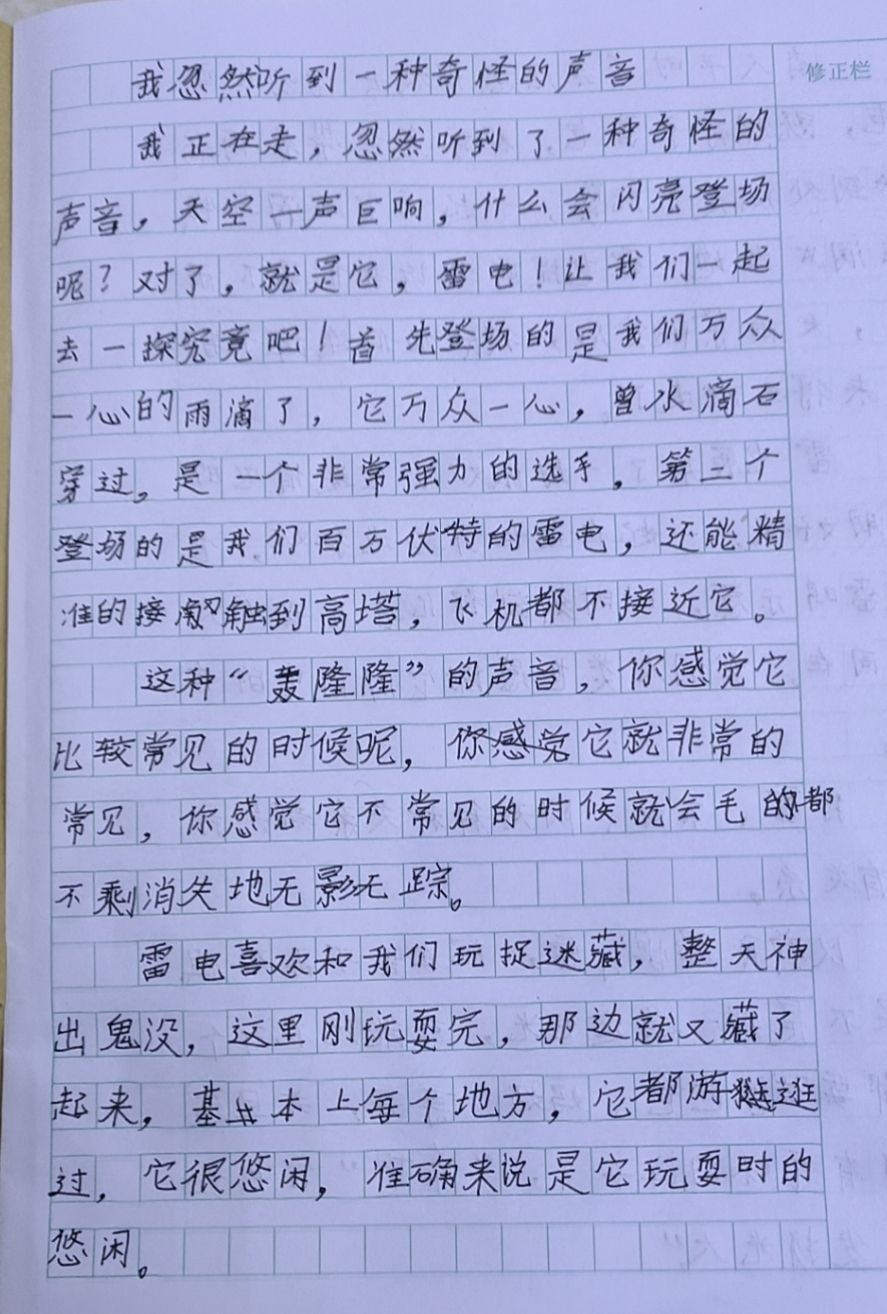 修正栏
我忽然听到一种奇怪的声音
我正在走，忽然听到了一种奇怪的
声音，天空一声巨响，什么会闪亮登场
呢？对了，就是它，雷电！让我们一起
去一探究竟吧！首先登场的是我们万众
一心的雨滴了，它万众一心，曾水滴石
穿过，是一个非常强力的选手。第二个
登场的是我们百万伏特的雷电，还能精
准的接触到高塔，飞机都不接近它。
这种“轰隆隆”的声音，你感觉它
比较常见的时候呢，你感觉它就非常的
常见，你感觉它不常见的时候就会毛都
不剩消失地无影无踪。
雷电喜欢和我们玩捉迷藏，整天神
出鬼没，这里刚玩耍完，那边就又藏了
起来，基本上每个地方，它都游逛
过，它很悠闲，准确来说是它玩耍时的
悠闲。